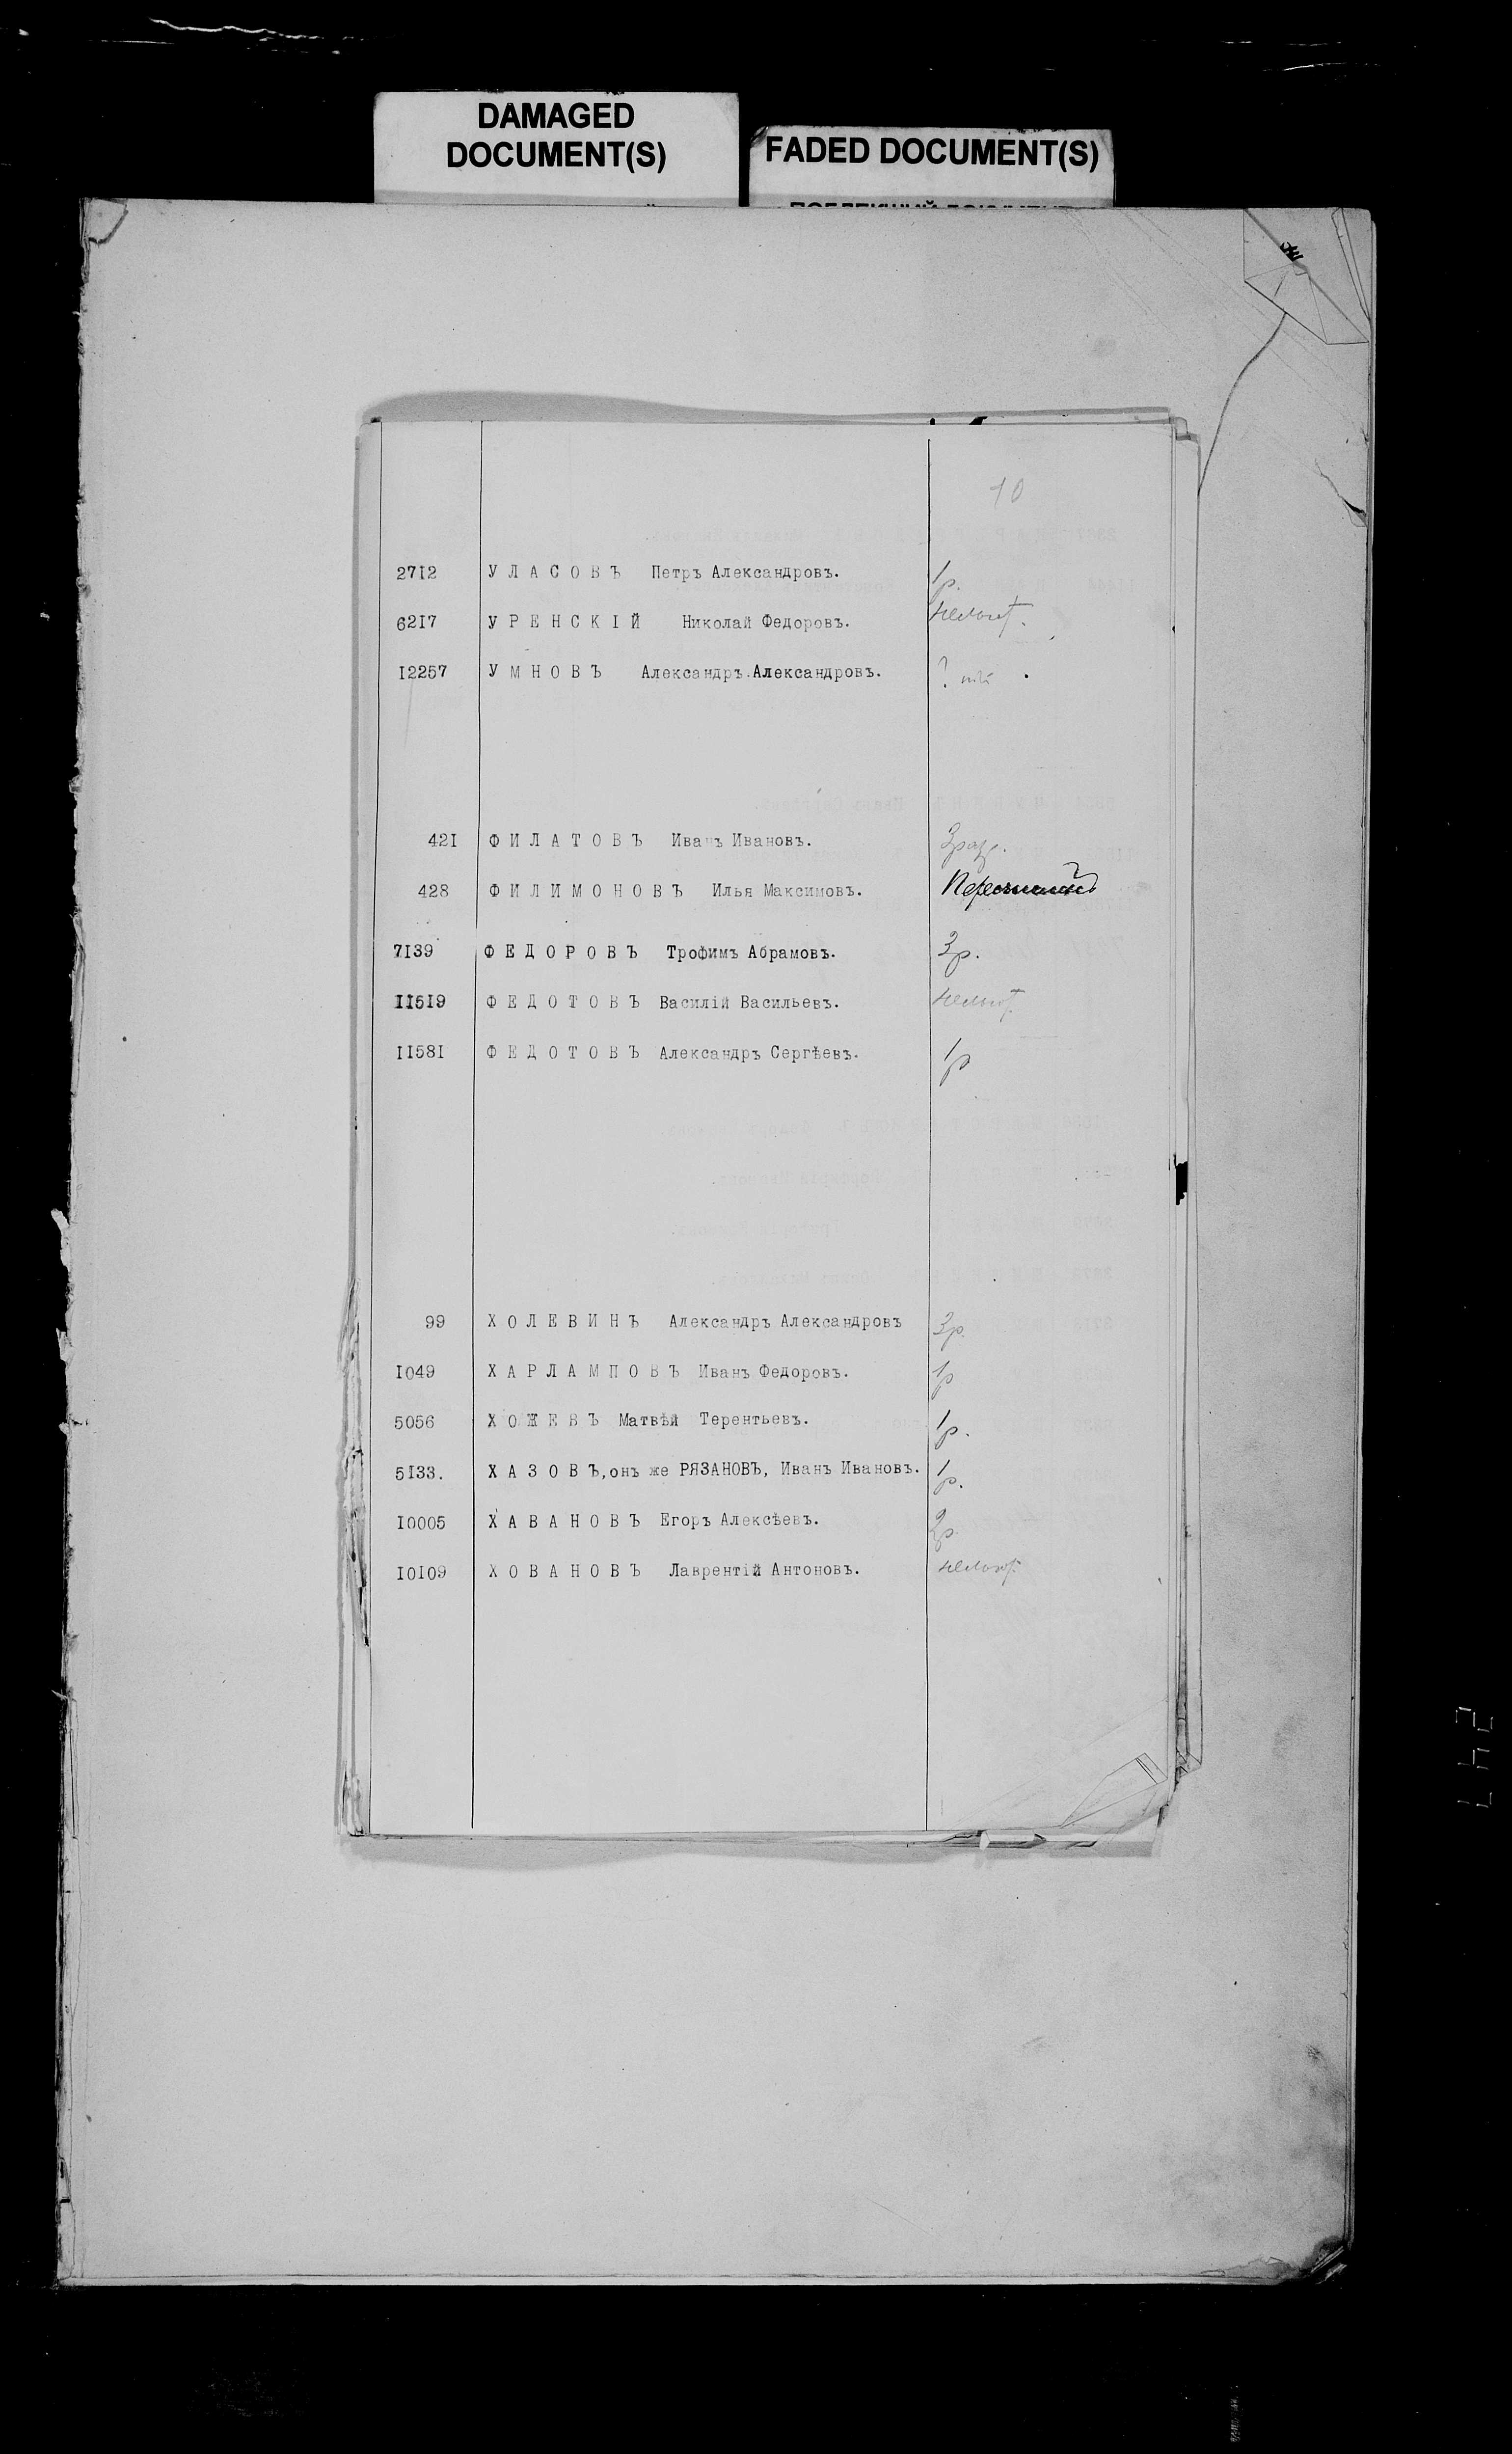 DAMAGED
DOCUMENT(S)
FADED DOCUMENT(S)
10
2712 УЛАСОВЪ Петръ Александровъ. 1р.
6217 УРЕНСКІЙ Николай Федоровъ.
12257 УМНОВЪ Александръ Александровъ. ?
421 ФИЛАТОВЪ Иванъ Ивановъ. 3разр.
428 ФИЛИМОНОВЪ Илья Максимовъ.
7139 ФЕДОРОВЪ Трофимъ Абрамовъ. 3р.
11519 ФЕДОТОВЪ Василій Васильевъ.
11581 ФЕДОТОВЪ Александръ Сергѣевъ. 1р
99 ХОЛЕВИНЪ Александръ Александровъ 3р.
1049 ХАРЛАМПОВЪ Иванъ Федоровъ. 1р
5056 ХОЖЕВЪ Матвѣй Терентьевъ. 1р.
5133. ХАЗОВЪ, онъ же РЯЗАНОВЪ, Иванъ Ивановъ. 1р.
10005 ХАВАНОВЪ Егоръ Алексѣевъ. 2р.
10109 ХОВАНОВЪ Лаврентій Антоновъ.
247